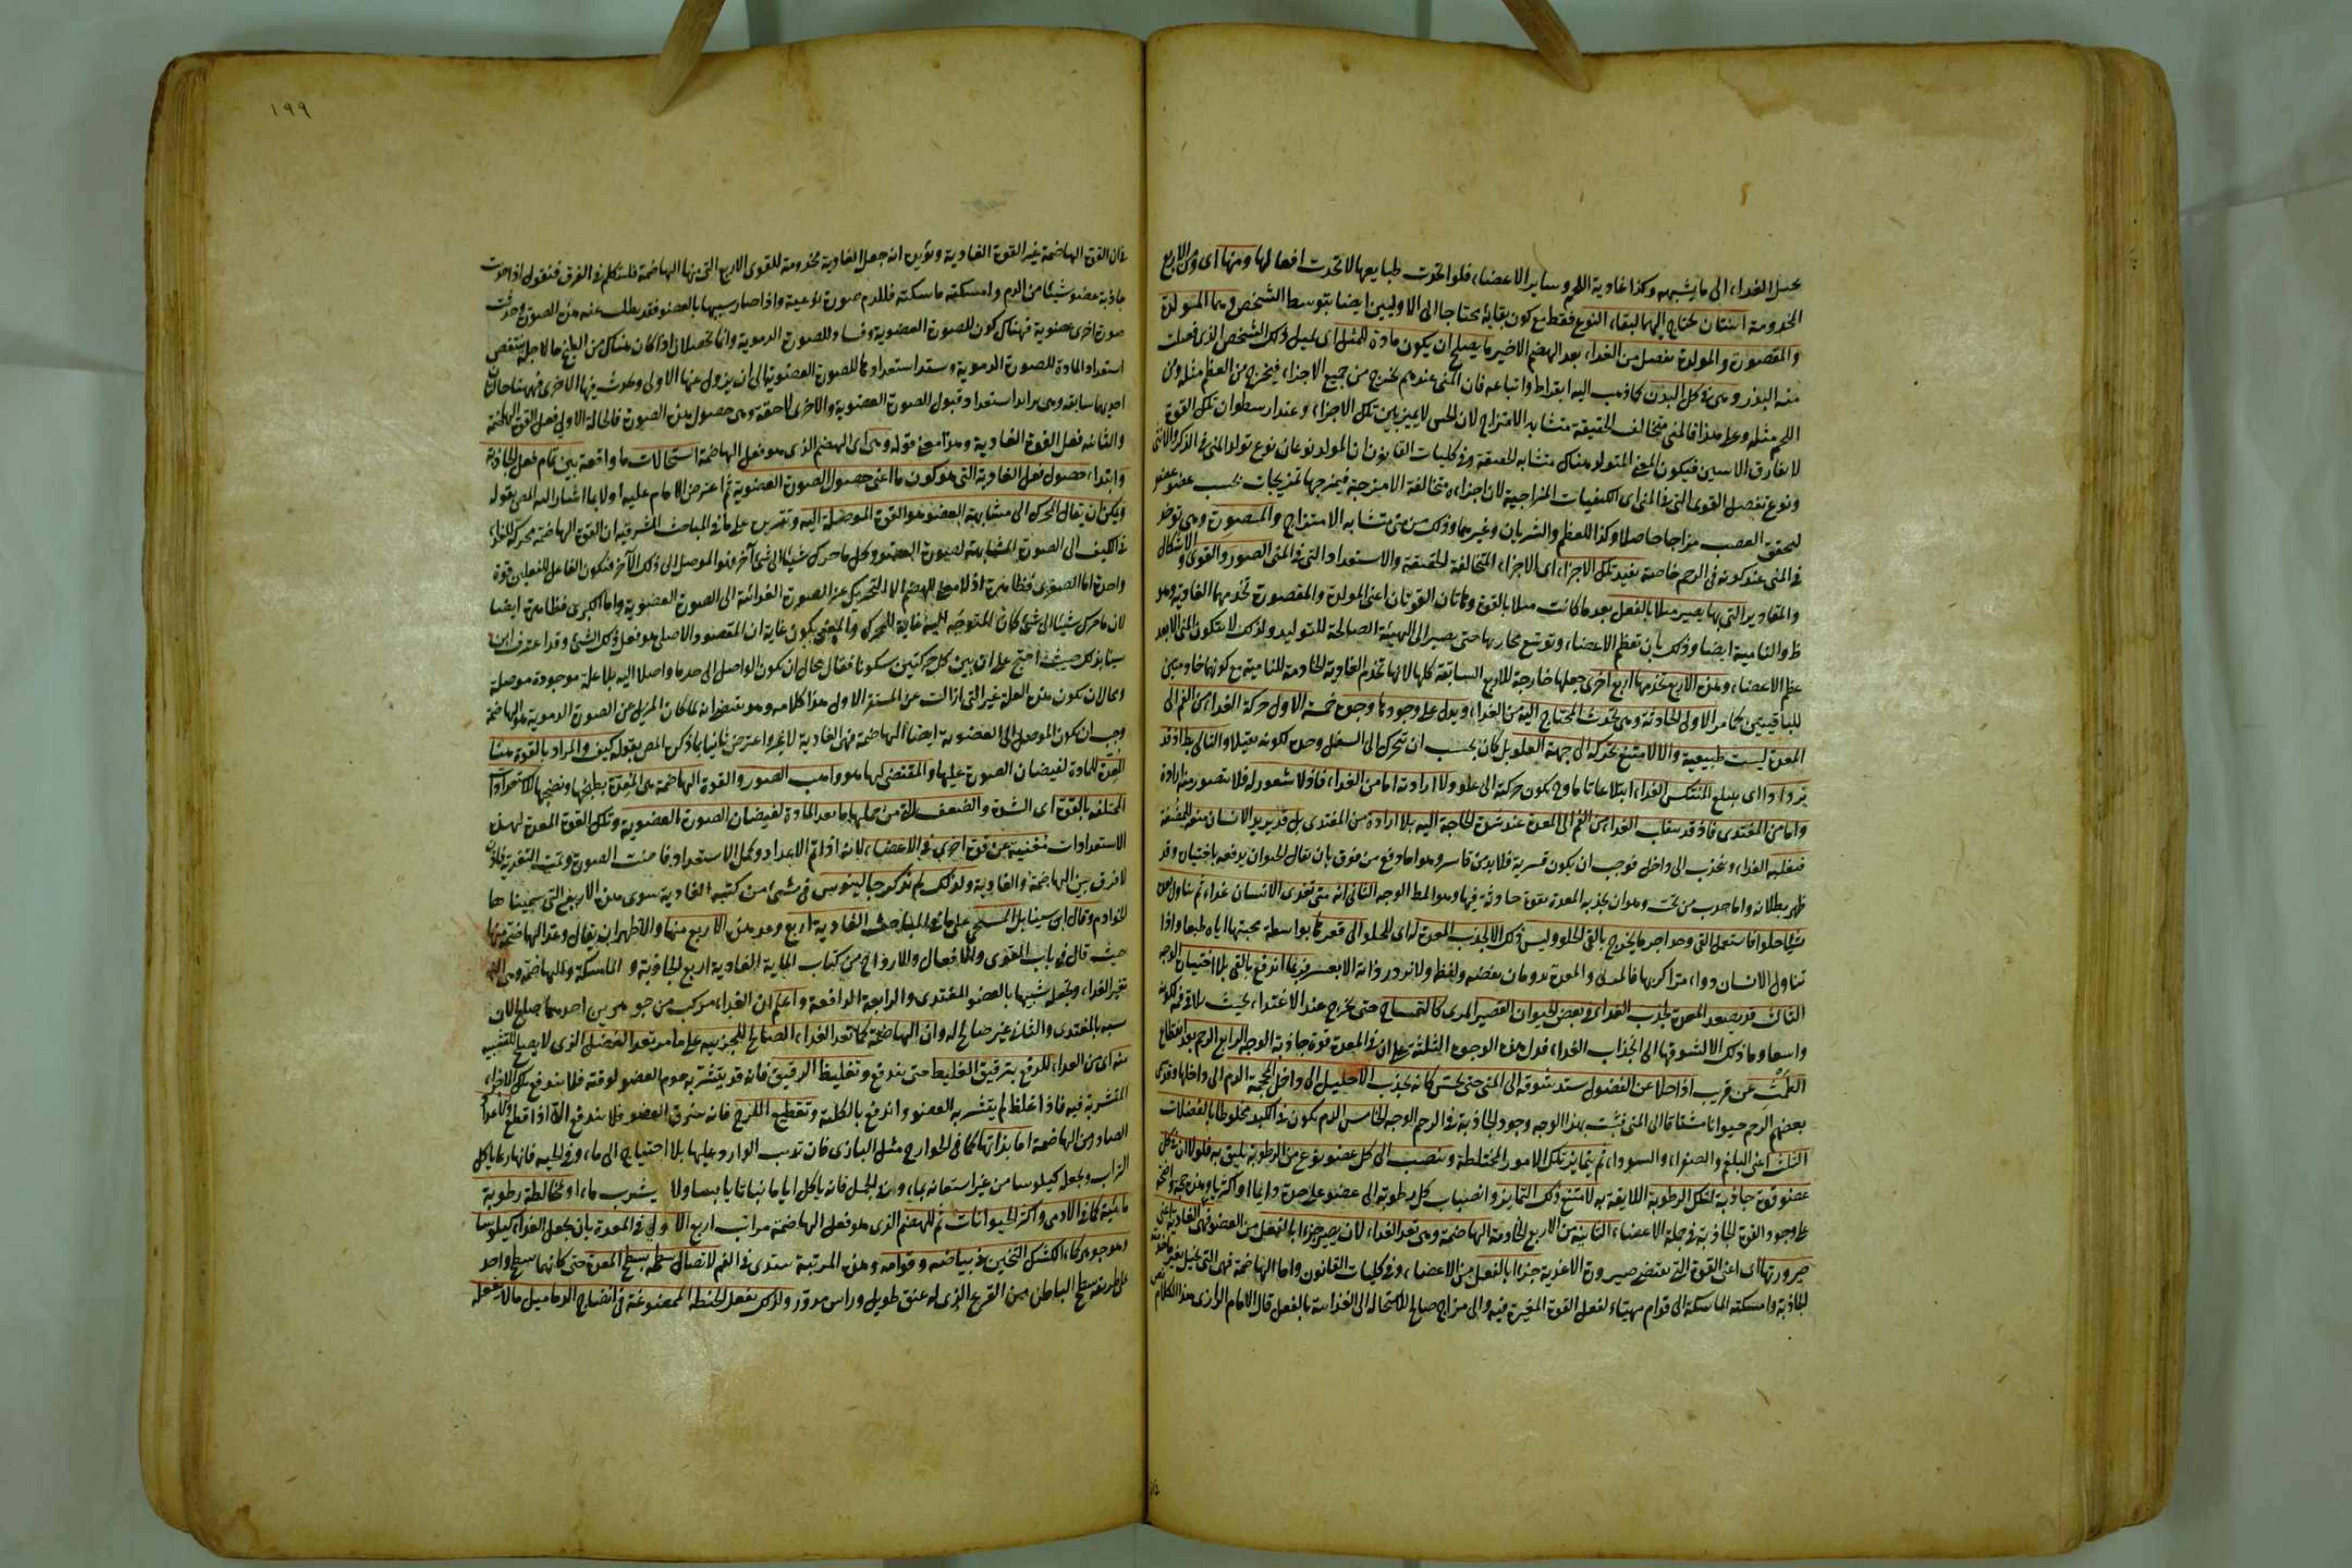 يحيل الغذاء الى ما يشبهه وكذا غاذية اللحم وساير الاعضاء فلو اتحدت طبايعها لاتحدت افعالها ومنها اى ومن الاربع
المخدومة اثنتان يحتاج اليهما لبقاء النوع فقط مع كون بقائه محتاجا الى الاوليين ايضا بتوسط الشخص وهما المولدة
والمصورة والمولدة تفصل من الغذاء بعد الهضم الاخير ما يصلح ان يكون مادة للمثل اى لمثل ذلك الشخص الذى فصلت
منه البذر وهى فى كل البدن كما ذهب اليه ابقراط واتباعه فان المنى عندهم يخرج من جميع الاجزاء فيخرج من العظم مثله ومن
اللحم مثله وعلى هذا فالمنى متخالف الحقيقة متشابه الامتزاج لان الحس لا يميز بين تلك الاجزاء وعند ارسطو ان تلك القوة
لا تفارق الانثيين فيكون المنى المتولد هناك متشابه الحقيقة وفى كليات القانون ان المولد نوعان نوع تولد المنى فى الذكر والانثى
ونوع تفصل القوى التى فى المنى اى الكيفيات المزاجية لان اجزاءه متخالفة الامزجة فيمزجها تمزيجات بحسب عضو عضو
ليحقق العصب مزاجا خاصا وكذا للعظم والشريان وغيرهما وذلك من منى متشابه الامتزاج والمصورة وهى توجد
فى المنى عند كونه فى الرحم خاصة تفيد تلك الاجزاء اى الاجزاء المتخالفة الحقيقة والاستعداد التى فى المنى الصور والقوى والاشكال
والمقادير التى بها يصير مثلا بالفعل بعد ما كانت مثلا بالقوة وهاتان القوتان اعنى المولدة والمصورة تخدمهما الغاذية وهو
ظ والنامية ايضا وذلك بان تعظم الاعضاء وتوسع مجاريها حتى يصير الى الهيئة الصالحة للتوليد ولذلك لا يتكون المنى الا بعد
عظم الاعضاء وهذه الاربع تخدمها اربع اخرى جعلها خارجة للاربع السابقة كلها لانها تخدم الغاذية الخادمة للنامية مع كونهما خادمتين
للباقيتين كما مر الاولى الجاذبة وهى تجذب المحتاج اليه من الغذاء ويدل على وجودها وجوه خمسة الاول حركة الغذاء من الفم الى
المعدة ليست طبيعية والا لامتنع تحركه الى جهة العلو بل كان يجب ان يتحرك الى السفل وحده لكونه ثقيلا والتالى بط اذ قد
يزدرد اى يبتلع المنتكس الغذاء ابتلاعا تاما وح يكون حركته الى علو ولا ارادية اما من الغذاء فاذ لا شعور له فلا يتصور منه ارادة
واما من المغتذى فاذ قد ينجذب الغذاء من الفم الى المعدة عند شدة الحاجة اليه بلا ارادة من المغتذى بل قد يريد الانسان منعه للمضغ
فيغلبه الغذاء ويجذب الى داخل فوجب ان يكون قسرية فلا بد من قاسر وهو اما دفع من فوق بان يقال الحيوان يدفعه باختياره وقد
ظهر بطلانه واما جذب من تحت وهو ان يجذبه المعدة بقوة جاذبة فيها وهو المط الوجه الثانى انه متى تغذى الانسان غذاء ثم تناول بعده
شيئا حلوا فاستعمل القئ وجد اخر ما يخرج بالقئ الحلو وليس ذلك الا لجذب المعدة له اى للحلو الى قعرها بواسطة محبتها اياه طبعا واذا
تناول الانسان دواء مرا كريها فالمرى والمعدة يدومان نفضه ولفظه ولا يزدردانه الا بعسر وربما اندفع بالقئ بلا اختيار الوجه
الثالث قد يصعد المعدة لجذب الغذاء فى بعض الحيوان القصير المرى كالتمساح حتى يخرج عند الاغتذاء بحيث يلاقى فمه لكونه
واسعا وما ذلك الا لشوقها الى انجذاب الغذاء فدل هذه الوجوه الثلثة على ان فى المعدة قوة جاذبة الوجه الرابع الرحم بعد انقطاع
الطمث عن قريب اذا خلا عن الفضول يشتد شوقه الى المنى حتى يحس كانه يجذب الاحليل الى داخل المحجمة الدم الى داخلها وقد سمى
بعضهم الرحم حيوانا مشتاقا الى المنى فثبت بهذا الوجه وجود الجاذبة فى الرحم الوجه الخامس الدم يكون فى الكبد مخلوطا بالفضلات
الثلث اعنى البلغم والصفراء والسوداء ثم يتمايز تلك الامور المختلطة وينصب الى كل عضو نوع من الرطوبة يليق به فلولا ان فى كل
عضو قوة جاذبة لتلك الرطوبة اللايقة به لامتنع ذلك التمايز وانصباب كل رطوبة الى عضو على حدة دايما او اكثريا وهذه حجة واضحة
على وجود القوة الجاذبة فى جملة الاعضاء الثانية من الاربع الخادمة الهاضمة وهى تعد الغذاء لان يصير جزءا بالفعل من العضو فهى الغاذية اعنى
صيرورتها اى اعنى القوة التى تقتضى صيرورة الاغذية جزءا بالفعل من الاعضاء وفى كليات القانون واما الهاضمة فهى التى تحيل
الجاذبة وامسكته الماسكة الى قوام مهيئاء لفعل القوة المغيرة فيه والى مزاج صالح للاستحالة الى الغذائية بالفعل قال الامام الرازى هذا الكلام
١٩٩
فان القوة الهاضمة غير القوة الغاذية وتؤيده انه جعل الغاذية مخدومة للقوى الاربع التى منها الهاضمة فلنتكلم فى الفرق فنقول اذا جذبت
جاذبة عضو شيئا من الدم وامسكته ماسكته فللدم صورة نوعية واذا صار شبيها بالعضو فقد بطلت عنه هذه الصورة وحدثت
صورة اخرى عضوية فهناك كون للصورة العضوية وفساد للصورة الدموية وانما تحصلان اذا كان هناك من الطبخ ما لاجله ينتقص
استعداد المادة للصورة الدموية ويشتد استعدادها للصورة العضوية الى ان يزول عنها الاولى ويحدث فيها الاخرى فههنا حالتان
احديهما سابقة وهى تزايد استعداد قبول الصورة العضوية والاخرى لاحقة وهى حصول هذه الصورة فالحالة الاولى فعل القوة الهاضمة
والثانية فعل القوة الغاذية وهذا معنى قوله وهى اى الهضم الذى هو فعل الهاضمة استحالات ما واقعة بين تمام فعل الجاذبة
وابتداء حصول فعل الغاذية التى هو كون ما اعنى حصول الصورة العضوية ثم اعترض الامام عليه اولا بما اشار اليه المص بقوله
ويمكن ان يقال المحرك الى مشابهة العضو هو القوة الموصلة اليه وتقريره على ما فى المباحث المشرقية ان القوة الهاضمة محركة للغذاء
فى الكيف الى الصورة المشابهة لصورة العضو وكل ما حرك شيئا الى شئ آخر فهو الموصل الى ذلك الآخر فيكون الفاعل للفعلين قوة
واحدة اما الصغرى فظاهرة اذ لا معنى للهضم الا التحريك عن الصورة الغذائية الى الصورة العضوية واما الكبرى فظاهرة ايضا
لان ما حرك شيئا الى شئ كان المتوجه اليه غاية للمحرك والمعنى بكونه غاية ان المقصود الاصلى هو فعل ذلك الشئ وقد اعترف ابن
سينا بذلك حيث احتج على ان بين كل حركتين سكونا فقال محال ان يكون الواصل الى حد ما واصلا اليه بلا علة موجودة موصلة
ومحال ان يكون هذه العلة غير التى ازالت عن المستقر الاول هذا كلامه وهو يقتضى انه لما كان المزيل عن الصورة الدموية هو الهاضمة
وجب ان يكون الموصل الى العضوية ايضا الهاضمة فهى الغاذية لا غير واعترض ثانيا بما ذكره المص بقوله كيف والمراد بالقوة هنا
المعدة للمادة لفيضان الصورة عليها والمقتضى لها هو واهب الصور والقوة الهاضمة هى المعدة بطبخها ونضجها للاستعدادات
المختلفة بالقوة اى الشدة والضعف من جملها ما بعد المادة لفيضان الصورة العضوية وتلك القوة المعدة لهذه
الاستعدادات مغنية عن قوة اخرى فى الاعضاء لانه اذا تم الاعداد وكمل الاستعداد فاضت الصورة وتمت التغذية فاذن
لا فرق بين الهاضمة والغاذية ولذلك لم يذكر جالينوس فى شئ من كتبه الغاذية سوى هذه الاربع التى سميناها
الخوادم وقال ابن سينا بل المسيحى على ما فى المباحث الغاذية اربع وعد هذه الاربع منها والاظهر ان يقال وعد الهاضمة منها
حيث قال فى باب القوى والافعال والارواح من كتاب المائة الغاذية اربع الجاذبة و الماسكة والهاضمة وهى التى
تغير الغذاء وتجعله شبيها بالعضو المغتذى والرابعة الدافعة واعلم ان الغذاء مركب من جوهرين احدهما صالح لان
يشبه بالمغتذى والثانى غير صالح له وان الهاضمة كما تعد الغذاء الصالح للجزئية على ما مر تعد الفضل الذى لا يصلح للتشبيه
منه اى من الغذاء للدفع بترقيق الغليظ حتى يندفع وتغليظ الرقيق فانه قد يتشربه جرم العضو لرقته فلا يندفع تلك الاجزاء
المتشربة فيه فاذا غلظ لم يتشربه العضو واندفع بالكلية وتقطيع اللزج فانه يلزق العضو فلا يندفع الا اذا قطع
الصادر من الهاضمة اما بذاتها كما فى الجوارح مثل البازى فان تذيب الوارد عليها بلا احتياج الى ماء وفى الحية فانها ربما ياكل
التراب ويجعله كيلوسا من غير استعانة بماء ومثل الجمل فانه ياكل اياما نباتا يابسا ولا يشرب ماء او بمخالطة رطوبة
مائية كما فى الادمى واكثر الحيوانات ثم للهضم الذى هو فعل الهاضمة مراتب اربع الاولى فى المعدة بان يجعل الغذاء كيلوسا
وهو جوهر كماء الكشك الثخين فى بياضه وقوامه وهذه المرتبة يبتدى فى الفم لاتصال سطحه بسطح المعدة حتى كانهما سطح واحد
على طريقة سطح الباطن من القرع الذى له عنق طويل وراس مدور ولذلك يفعل الحنطة الممضوغة فى انضاج الدماميل ما لا تفعله